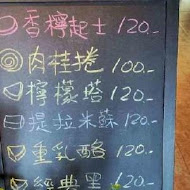 香檸起士 120.-
肉桂捲 100.-
檸檬塔 120.-
提拉米蘇 120.-
重乳酪 120.-
經典黑 120.-